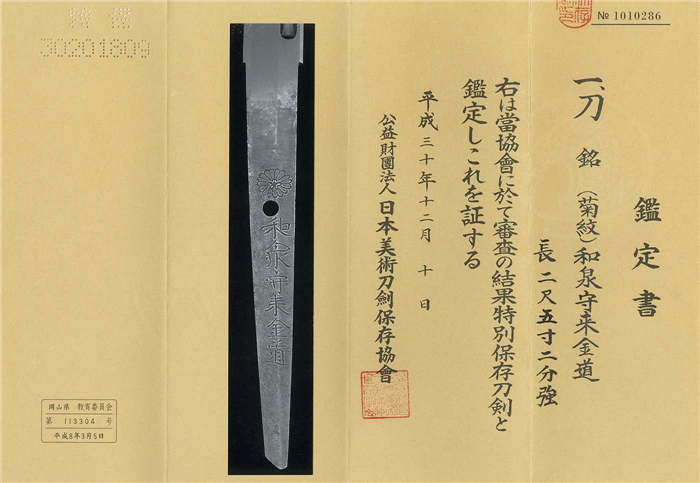 № 1010286
鑑定書
一、刀 銘 (菊紋)和泉守来金道
長 二尺五寸二分強
右は當協會に於て審査の結果特別保存刀剣と
鑑定しこれを証する
平成三十年十二月 十 日
公益財團法人 日本美術刀劍保存協會
和泉守来金道
30201809
岡山県 教育委員会
第 113304 号
平成8年3月5日